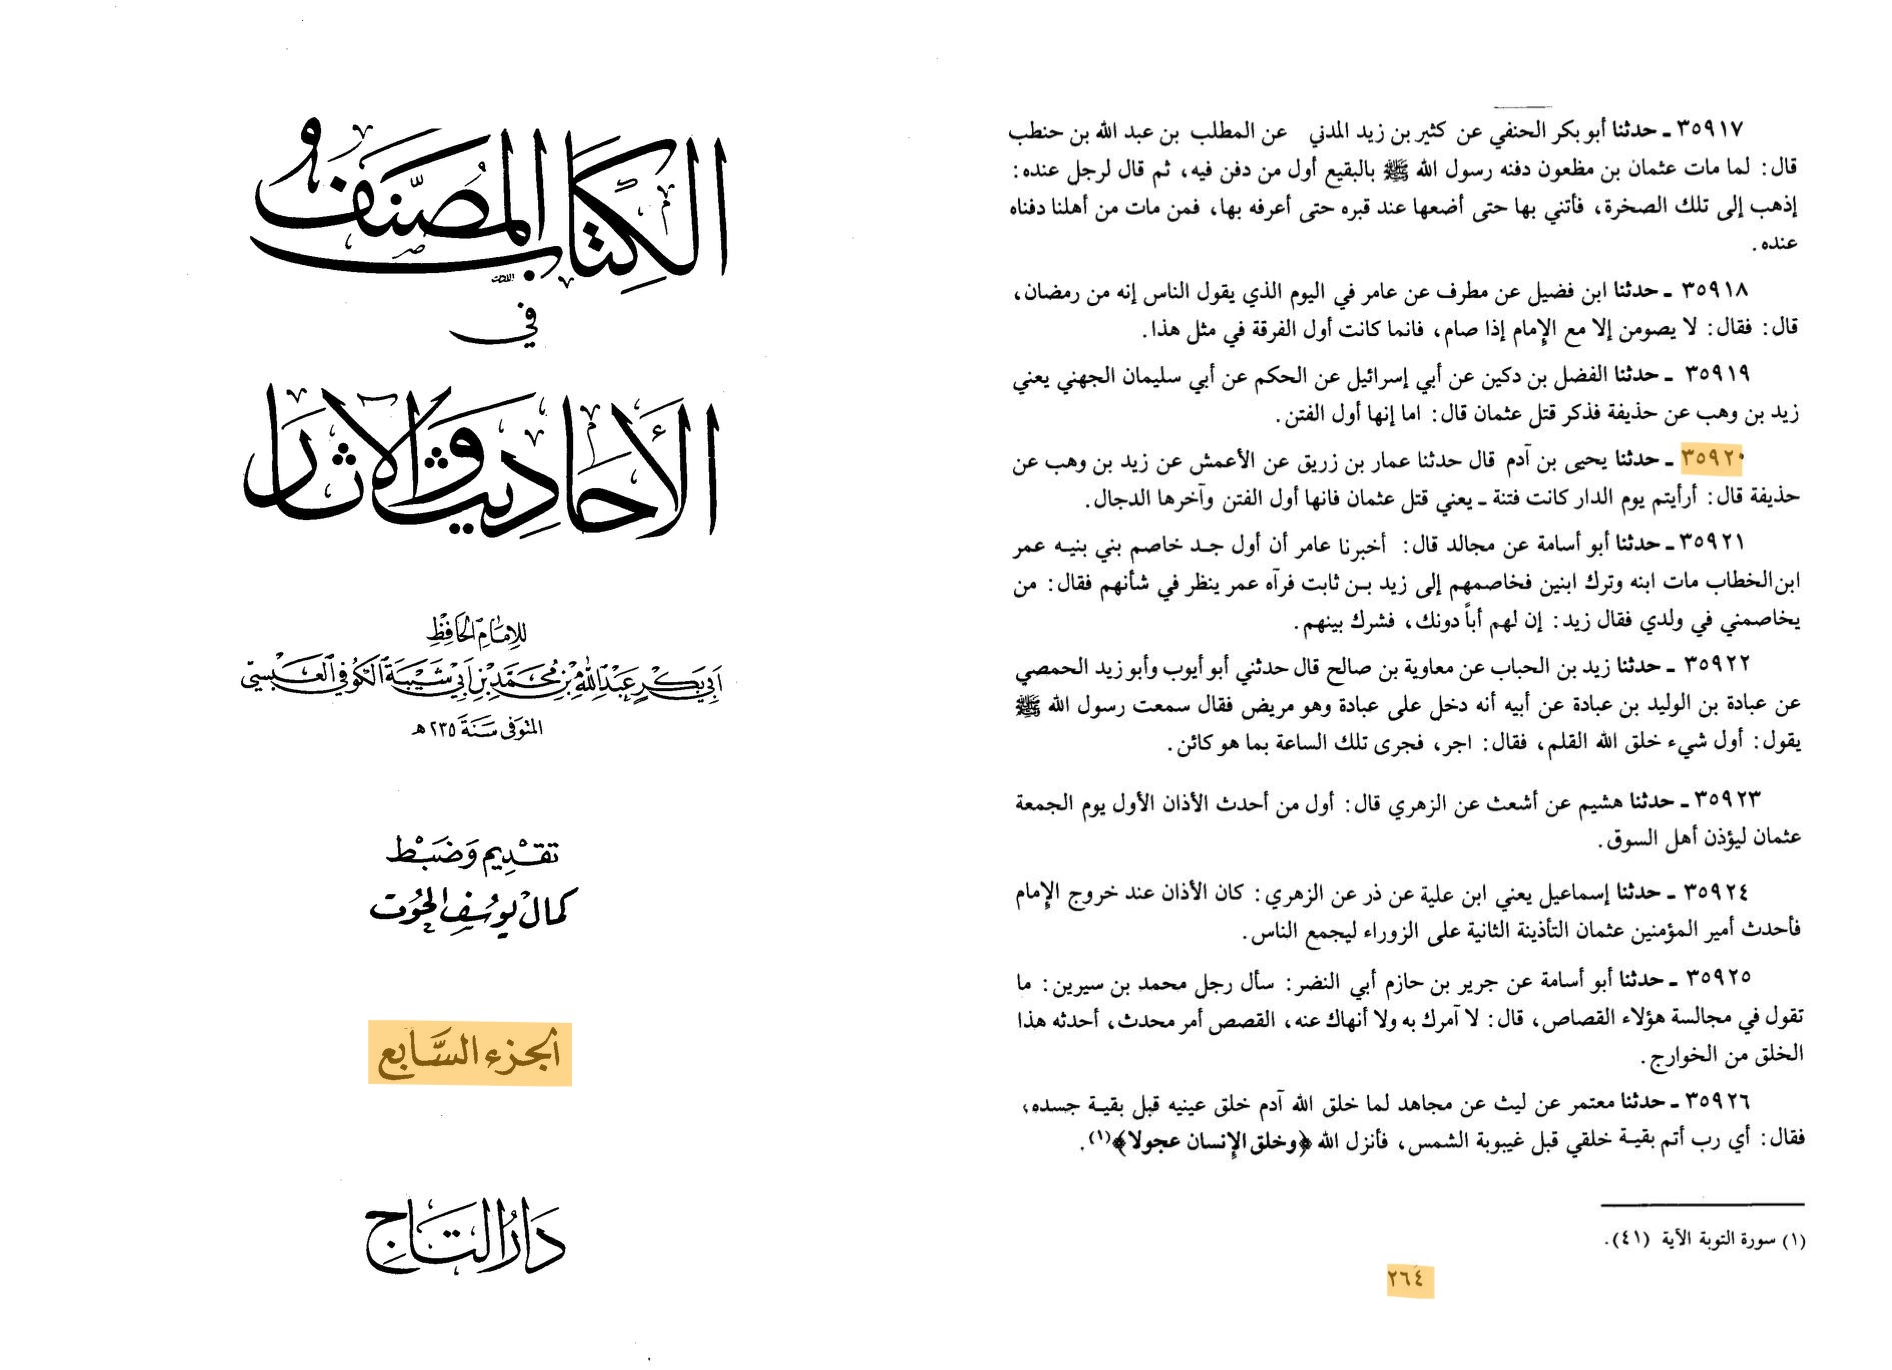 الكتاب المصنف
في
الأحاديث والآثار
للإمام الحافظ
أبي بكر عبد الله بن محمد بن أبي شيبة الكوفي العبسي
المتوفى سنة ٢٣٥ هـ
تقديم وضبط
كمال يوسف الحوت
الجزء السابع
دار التاج
٣٥٩١٧ ـ حدثنا أبو بكر الحنفي عن كثير بن زيد المدني عن المطلب بن عبد الله بن حنطب
قال: لما مات عثمان بن مظعون دفنه رسول الله ﷺ بالبقيع أول من دفن فيه، ثم قال لرجل عنده:
إذهب إلى تلك الصخرة، فأتني بها حتى أضعها عند قبره حتى أعرفه بها، فمن مات من أهلنا دفناه
عنده.
٣٥٩١٨ ـ حدثنا ابن فضيل عن مطرف عن عامر في اليوم الذي يقول الناس إنه من رمضان،
قال: فقال: لا يصومن إلا مع الإمام إذا صام، فانما كانت أول الفرقة في مثل هذا.
٣٥٩١٩ ـ حدثنا الفضل بن دكين عن أبي إسرائيل عن الحكم عن أبي سليمان الجهني يعني
زيد بن وهب عن حذيفة فذكر قتل عثمان قال: اما إنها أول الفتن.
٣٥٩٢٠ ـ حدثنا يحيى بن آدم قال حدثنا عمار بن زريق عن الأعمش عن زيد بن وهب عن
حذيفة قال: أرأيتم يوم الدار كانت فتنة ـ يعني قتل عثمان فانها أول الفتن وآخرها الدجال.
٣٥٩٢١ ـ حدثنا أبو أسامة عن مجالد قال: أخبرنا عامر أن أول جد خاصم بني بنيه عمر
ابن الخطاب مات ابنه وترك ابنين فخاصمهم إلى زيد بن ثابت فرآه عمر ينظر في شأنهم فقال: من
يخاصمني في ولدي فقال زيد: إن لهم أباً دونك، فشرك بينهم.
٣٥٩٢٢ ـ حدثنا زيد بن الحباب عن معاوية بن صالح قال حدثني أبو أيوب وأبو زيد الحمصي
عن عبادة بن الوليد بن عبادة عن أبيه أنه دخل على عبادة وهو مريض فقال سمعت رسول الله ﷺ
يقول: أول شيء خلق الله القلم، فقال: اجر، فجرى تلك الساعة بما هو كائن.
٣٥٩٢٣ ـ حدثنا هشيم عن أشعث عن الزهري قال: أول من أحدث الأذان الأول يوم الجمعة
عثمان ليؤذن أهل السوق.
٣٥٩٢٤ ـ حدثنا إسماعيل يعني ابن علية عن ذر عن الزهري: كان الأذان عند خروج الإمام
فأحدث أمير المؤمنين عثمان التأذينة الثانية على الزوراء ليجمع الناس.
٣٥٩٢٥ ـ حدثنا أبو أسامة عن جرير بن حازم أبي النضر: سأل رجل محمد بن سيرين: ما
تقول في مجالسة هؤلاء القصاص، قال: لا آمرك به ولا أنهاك عنه، القصص أمر محدث، أحدثه هذا
الخلق من الخوارج.
٣٥٩٢٦ ـ حدثنا معتمر عن ليث عن مجاهد لما خلق الله آدم خلق عينيه قبل بقية جسده،
فقال: أي رب أتم بقية خلقي قبل غيبوبة الشمس، فأنزل الله ﴿وخلق الإنسان عجولا﴾(١).
(١) سورة التوبة الآية (٤١).
٢٦٤